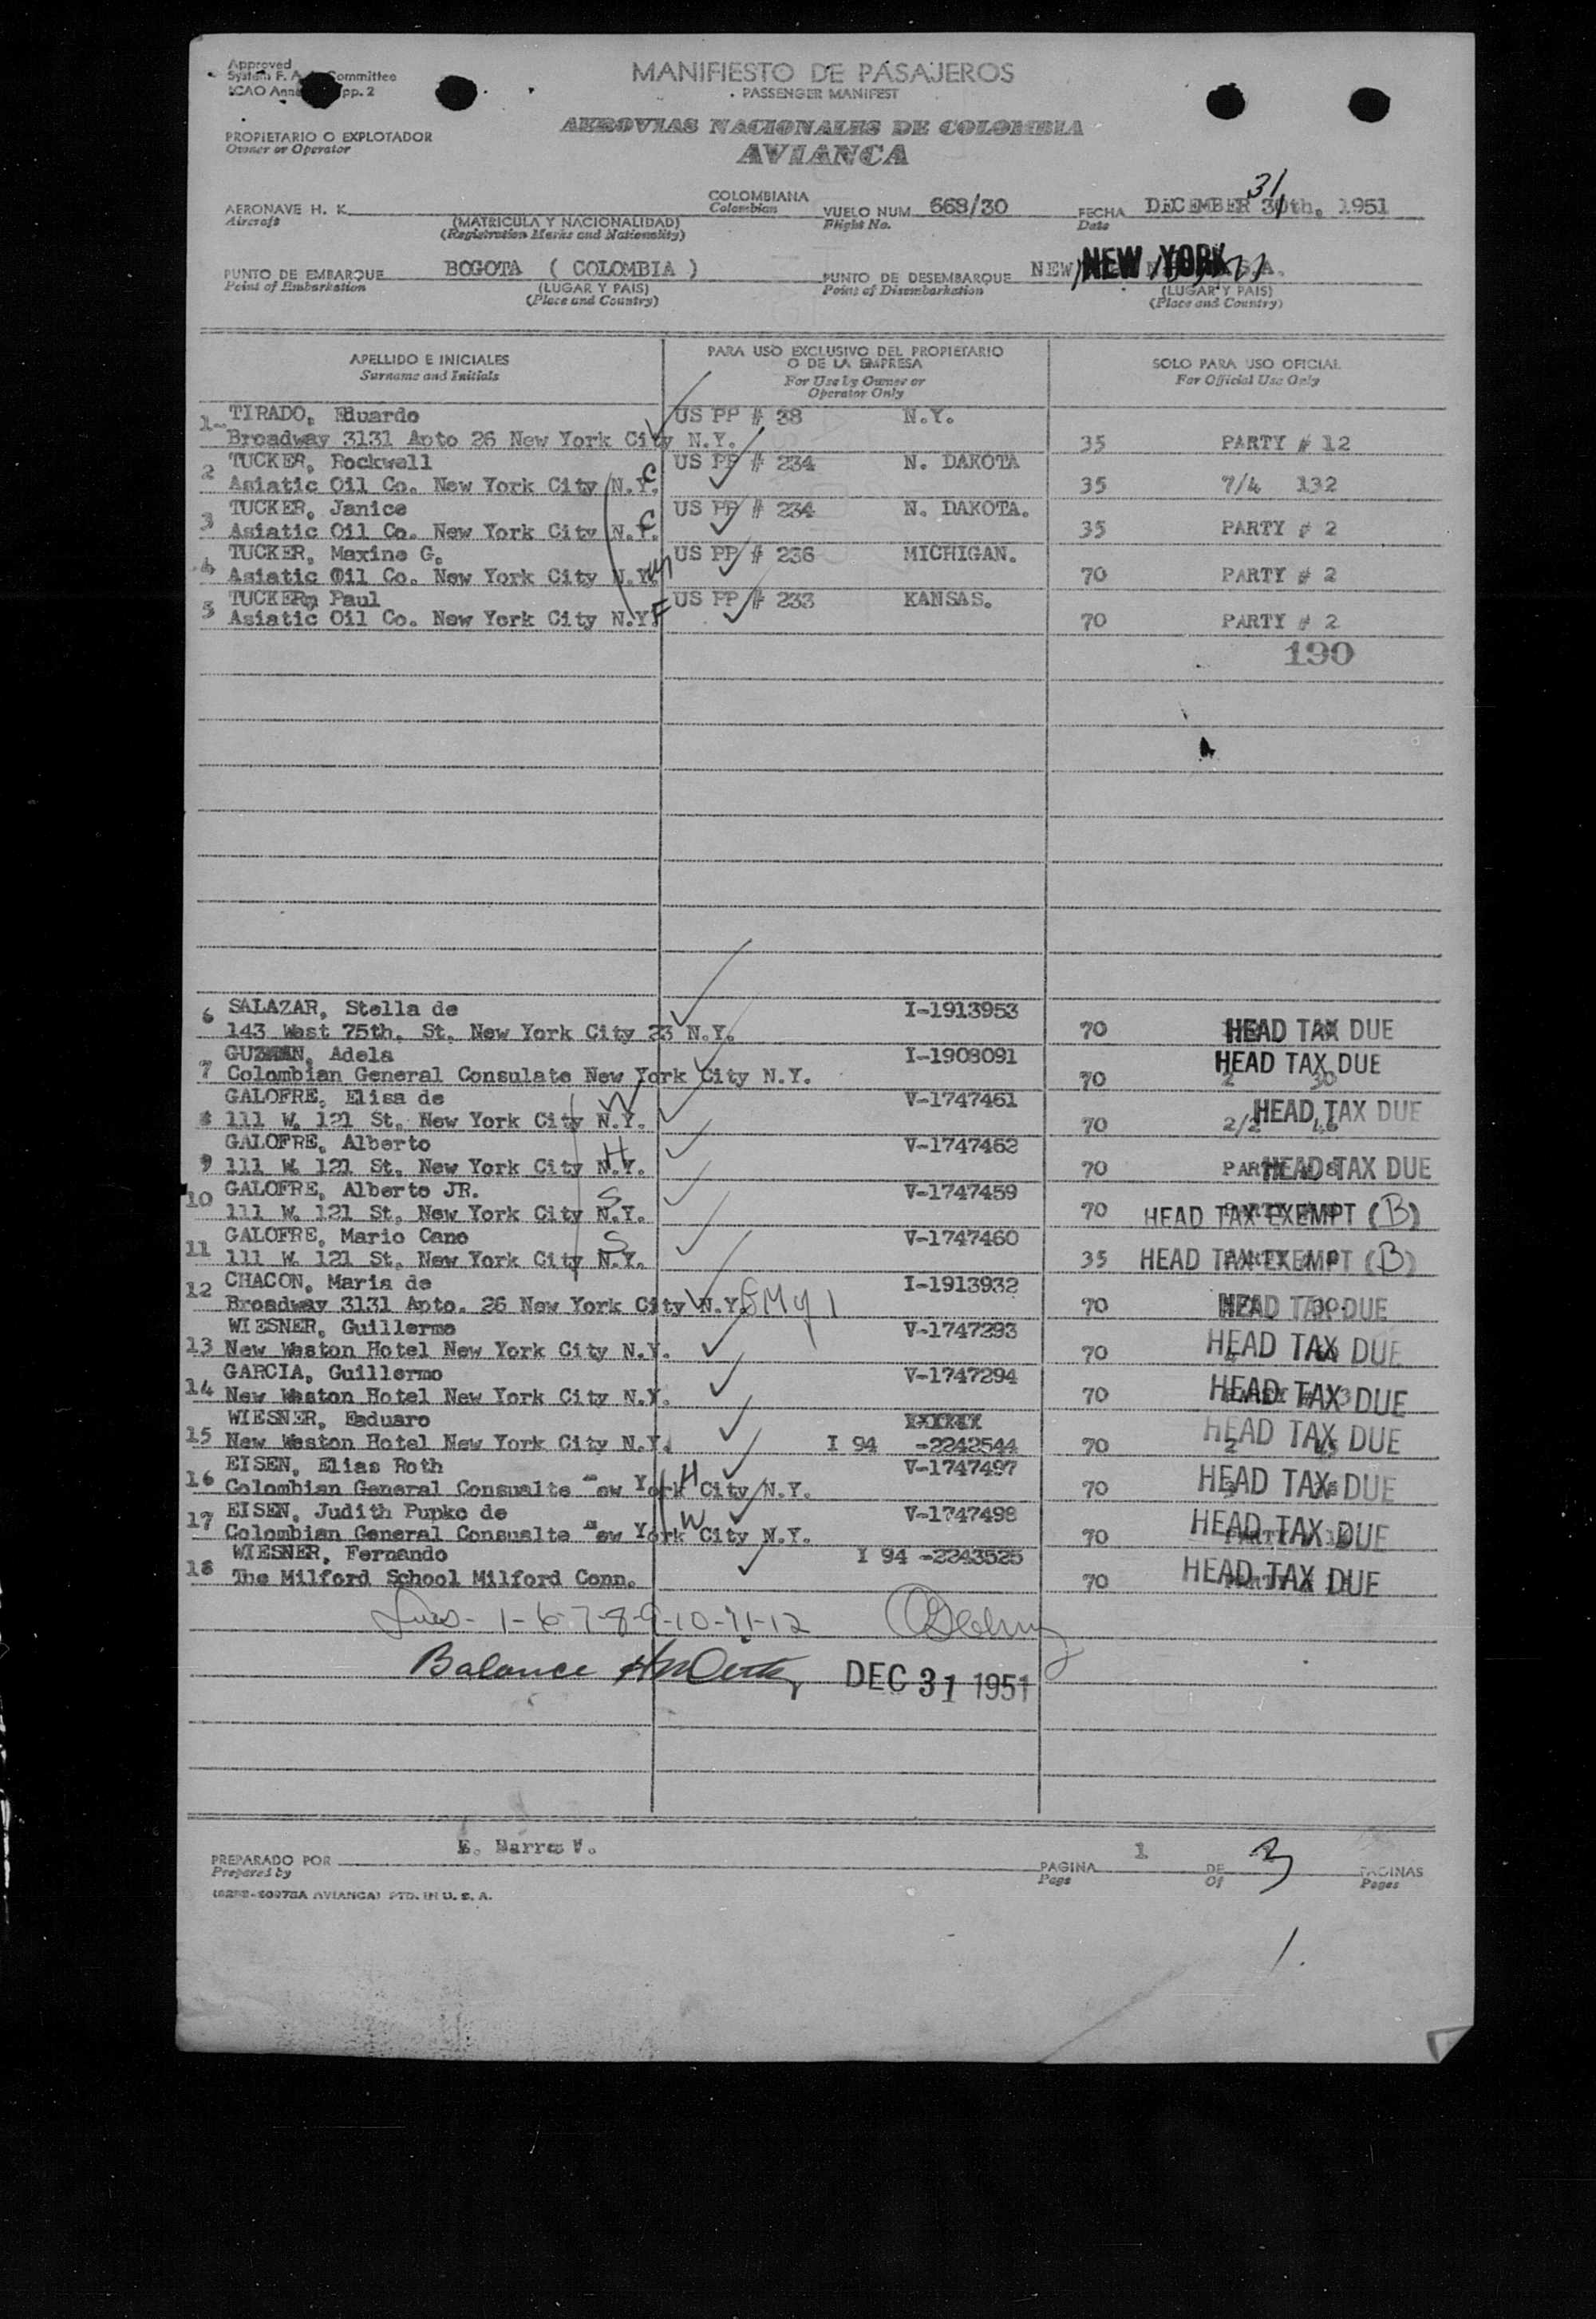 Approved
System F. A. L. Committee
ICAO Annex pp. 2
MANIFIESTO DE PASAJEROS
PASSENGER MANIFEST
PROPIETARIO O EXPLOTADOR
Owner or Operator
AEROVIAS NACIONALES DE COLOMBIA
AVIANCA
AERONAVE H. K.
Aircraft
(MATRICULA Y NACIONALIDAD)
(Registration Marks and Nationality)
COLOMBIANA
Colombian
VUELO NUM. 668/30
Flight No.
FECHA DECEMBER 30th, 1951
Date
31
PUNTO DE EMBARQUE BOGOTA ( COLOMBIA )
Point of Embarkation
(LUGAR Y PAIS)
(Place and Country)
PUNTO DE DESEMBARQUE NEW NEW YORK S.A.
Point of Disembarkation
(LUGAR Y PAIS)
(Place and Country)
APELLIDO E INICIALES
Surname and Initials
PARA USO EXCLUSIVO DEL PROPIETARIO
O DE LA EMPRESA
For Use by Owner or
Operator Only
SOLO PARA USO OFICIAL
For Official Use Only
1 TIRADO, Eduardo US PP # 38 N.Y.
Broadway 3131 Apto 26 New York City N.Y. 35 PARTY # 12
2 TUCKER, Rockwell US PP # 234 N. DAKOTA
Asiatic Oil Co. New York City N.Y. C 35 7/4 132
3 TUCKER, Janice US PP # 234 N. DAKOTA.
Asiatic Oil Co. New York City N.Y. C 35 PARTY # 2
4 TUCKER, Maxine G. US PP # 236 MICHIGAN.
Asiatic Oil Co. New York City N.Y. M 70 PARTY # 2
5 TUCKER, Paul US PP # 233 KANSAS.
Asiatic Oil Co. New York City N.Y. F 70 PARTY # 2
190
6 SALAZAR, Stella de I-1913953
143 West 75th. St. New York City 23 N.Y. 70 HEAD TAX DUE
7 GUZMAN, Adela I-1908091
Colombian General Consulate New York City N.Y. 70 2 30 HEAD TAX DUE
8 GALOFRE, Elisa de V-1747461
111 W. 121 St. New York City N.Y. W 70 2/2 46 HEAD TAX DUE
9 GALOFRE, Alberto V-1747462
111 W. 121 St. New York City N.Y. H 70 HEAD TAX DUE
10 GALOFRE, Alberto JR. V-1747459
111 W. 121 St. New York City N.Y. S 70 HEAD TAX EXEMPT (B)
11 GALOFRE, Mario Cano V-1747460
111 W. 121 St. New York City N.Y. S 35 HEAD TAX EXEMPT (B)
12 CHACON, Maria de I-1913932
Broadway 3131 Apto. 26 New York City N.Y. 70 HEAD TAX DUE
13 WIESNER, Guillermo V-1747293
New Weston Hotel New York City N.Y. 70 HEAD TAX DUE
14 GARCIA, Guillermo V-1747294
New Weston Hotel New York City N.Y. 70 HEAD TAX DUE
15 WIESNER, Eaduaro XXXXXX
New Weston Hotel New York City N.Y. I 94 -2242544 70 HEAD TAX DUE
16 EISEN, Elias Roth V-1747497
Colombian General Consualte New York City N.Y. H 70 HEAD TAX DUE
17 EISEN, Judith Pupko de V-1747498
Colombian General Consualte New York City N.Y. W 70 HEAD TAX DUE
18 WIESNER, Fernando I 94 -2243525
The Milford School Milford Conn. 70 HEAD TAX DUE
1-6-7-8-9-10-11-12
Balance
DEC 31 1951
PREPARADO POR E. Barros V.
Prepared by
PAGINA 1 DE 3 PAGINAS
Page Of Pages
AVIANCA) PTD. IN U. S. A.
1.